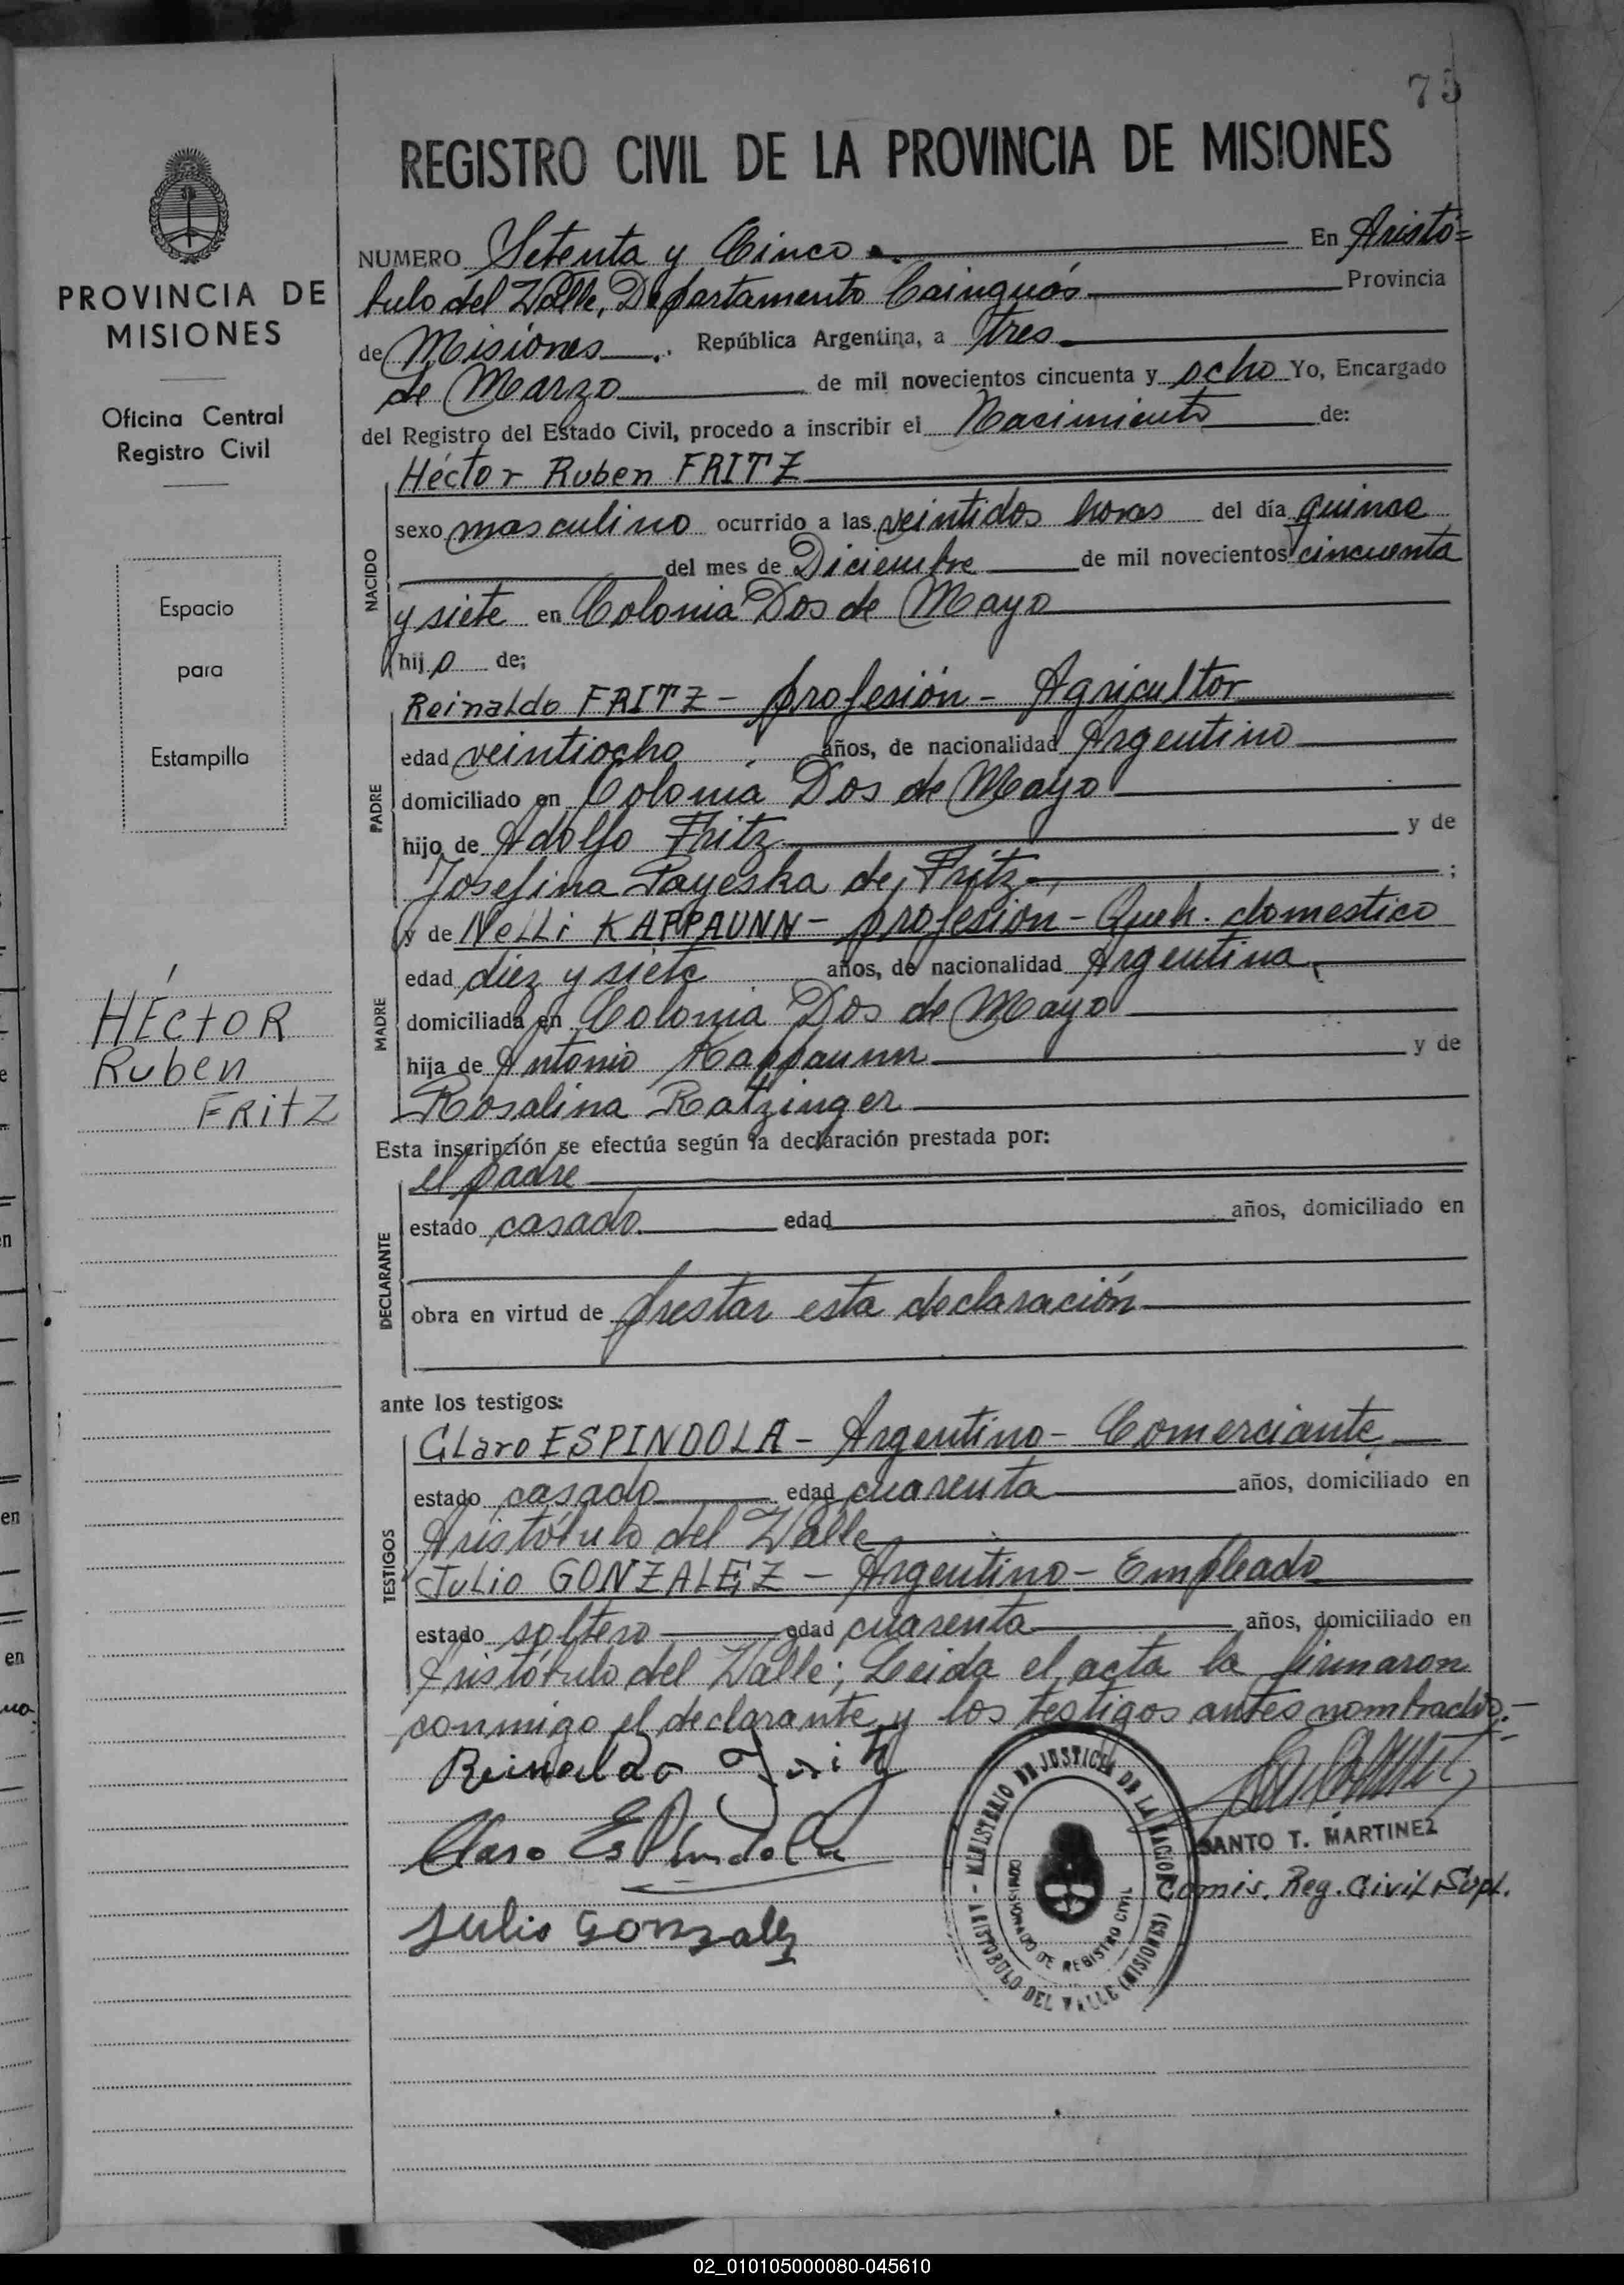 75
REGISTRO CIVIL DE LA PROVINCIA DE MISIONES
PROVINCIA DE
MISIONES
Oficina Central
Registro Civil
Espacio
para
Estampilla
HÉCTOR
Ruben
FRITZ
NUMERO Setenta y Cinco.- En Aristó=
bulo del Valle, Departamento Cainguás Provincia
de Misiones República Argentina, a tres
de Marzo de mil novecientos cincuenta y ocho Yo, Encargado
del Registro del Estado Civil, procedo a inscribir el Nacimiento de:
NACIDO
Héctor Ruben FRITZ
sexo masculino ocurrido a las veintidos horas del día quince
del mes de Diciembre de mil novecientos cincuenta
y siete en Colonia Dos de Mayo
hijo de;
PADRE
Reinaldo FRITZ - profesión - Agricultor
edad veintiocho años, de nacionalidad Argentino
domiciliado en Colonia Dos de Mayo
hijo de Adolfo Fritz y de
Josefina Payeska de Fritz ;
MADRE
y de Nelli KAPPAUNN - profesión - Queh. domestico
edad diez y siete años, de nacionalidad Argentina
domiciliada en Colonia Dos de Mayo
hija de Antonio Kappaunn y de
Rosalina Ratzinger
Esta inscripción se efectúa según la declaración prestada por:
DECLARANTE
el padre
estado casado edad años, domiciliado en
obra en virtud de prestar esta declaración
ante los testigos:
TESTIGOS
Claro ESPINDOLA - Argentino - Comerciante
estado casado edad cuarenta años, domiciliado en
Aristóbulo del Valle
Julio GONZALEZ - Argentino - Empleado
estado soltero edad cuarenta años, domiciliado en
Aristóbulo del Valle; Leida el acta la firmaron
conmigo el declarante y los testigos antes nombrados.-
Reinaldo Fritz
Claro Espindola
Julio Gonzalez
MINISTERIO DE JUSTICIA DE LA NACION
COMISIONADO DE REGISTRO CIVIL
ARISTOBULO DEL VALLE (MISIONES)
SANTO T. MARTINEZ
Comis. Reg. Civil Supl.
02_010105000080-045610